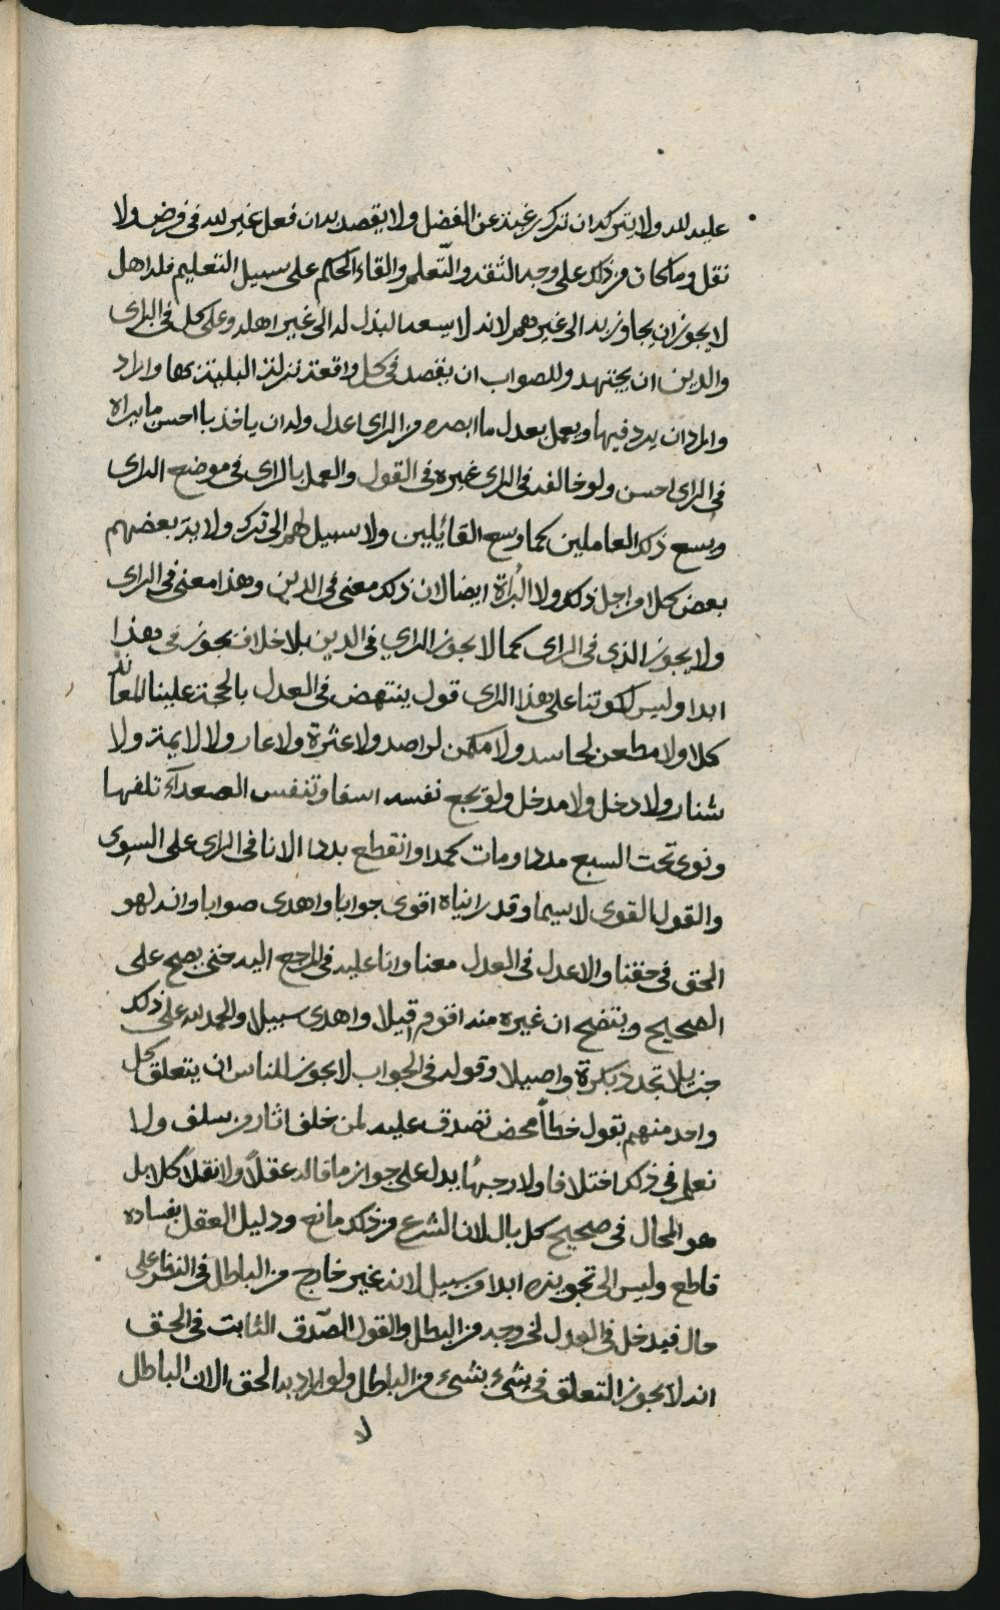 عليه لله ولا يتركه ان تركه رغبة عن الفضل ولا يقصد به ان فعل غير لله في فرض ولا
نفل وما كان من ذلك على وجه التفقد والتعلم والقاء الحكم على سبيل التعليم فله اهل
لا يجوز ان يجاوز به الى غيرهم لانه لا يسعه البذل له الى غير اهله وعلى كل في الراى
والدين ان يجتهد وللصواب ان يقصد في كل واقعة نزلت البلية بها واراد
والمراد ان يرد فيها ويعمل بعدل ما ابصره من الراى اعدل وله ان ياخذ بااحسن ما يراه
في الراى احسن ولو خالفه في الراى غيره في القول والعمل بالراى في موضع الراى
ويسع ذلك العاملين كما وسع القائلين ولا سبيل لهم الى ترك ولاية بعضهم
بعض كلا من اجل ذلك ولا البراة ايضا لان ذلك معنى في الدين وهذا معنى في الراى
ولا يجوز الذى في الراى كما لا يجوز الراي في الدين بلا خلاف يجوز في هذا
ابدا وليس لكوننا على هذا الراى قول ينتهض في العدل بالحجة علينا لمعاند
كلا ولا مطعن لحاسد ولا مكمن لراصد ولا عثرة ولا عار ولا لايمة ولا
شنار ولا دخل ولا مدخل ولو بجع نفسه اسفا وتنفس الصعدآء تلفها
ونوى تحت السبع مددا ومات كمدا وانقطع بددا الانا في الراى على السوى
والقول القوى لا سيما وقد رايناه اقوى جوابا واهدى صوابا وانه لهو
الحق في حقنا والاعدل في العدل معنا وانا عليه في المرجع اليه حتى يصح على
الصحيح ويتضح ان غيره منه اقوم قيلا واهدى سبيلا والحمد لله على ذلك
جزيلا تجدد بكرة واصيلا وقوله في الجواب لا يجوز للناس ان يتعلق كل
واحد منهم بقول خطأ محض تصدق عليه لمن خلف اثار من سلف ولا
نعلم في ذلك اختلافا ولا وجها يدل على جواز ما قاله عقلاً ولا نقلاً كلا بل
هو المحال في صحيح كل بال لان الشرع من ذلك مانع ودليل العقل بفساده
قاطع وليس الى تجويزه ابدا من سبيل لانه غير خارج من الباطل في النظر على
حال فيدخل في العدل لخروجه من البطل والقول الصدق الثابت في الحق
انه لا يجوز التعلق في شيء بشيء من الباطل ولو اراد به الحق الا ان الباطل
لا